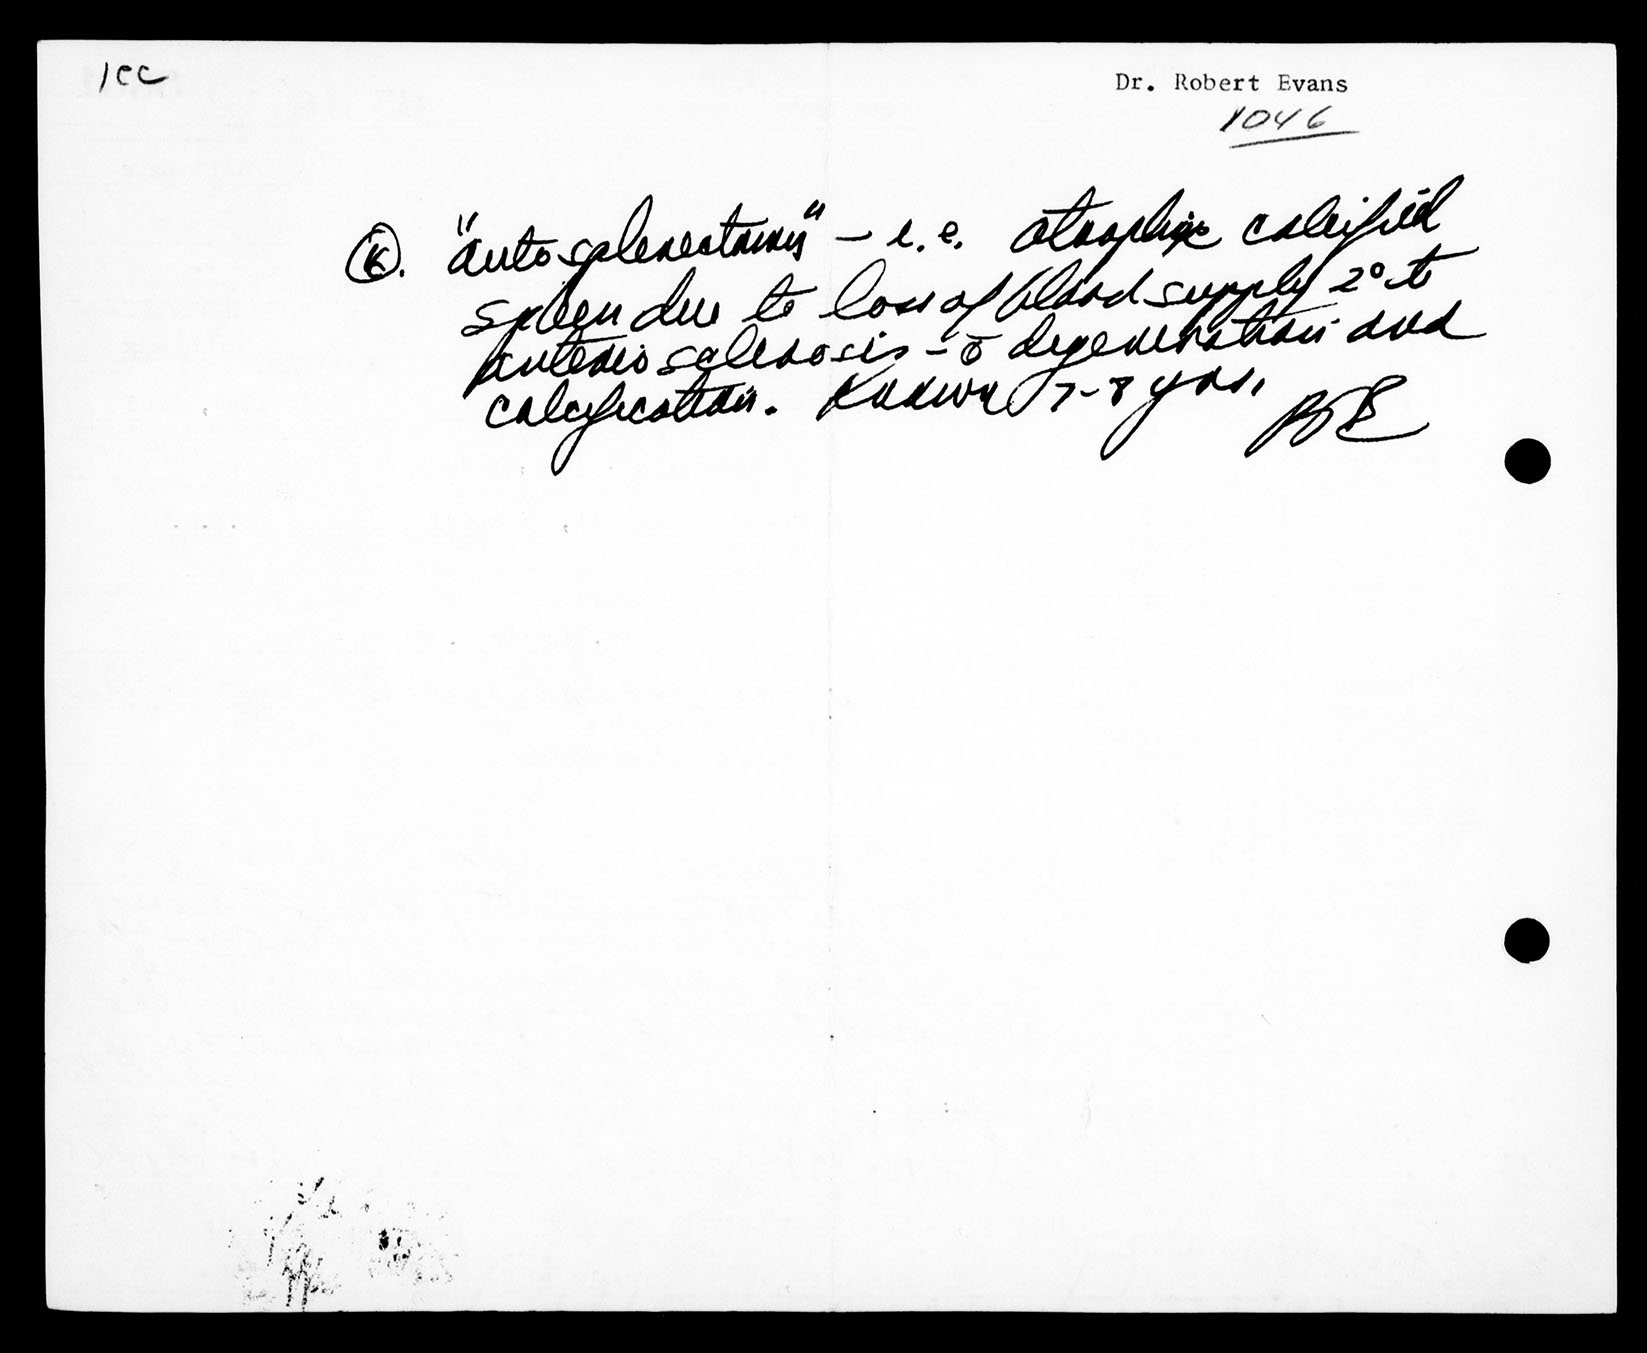 1cc
Dr. Robert Evans
1046
Ⓚ. "autosplenectomy" – i.e. atrophic calcified
spleen due to loss of blood supply 2° to
arteriosclerosis – c̄ degeneration and
calcification. Known 7-8 yrs.